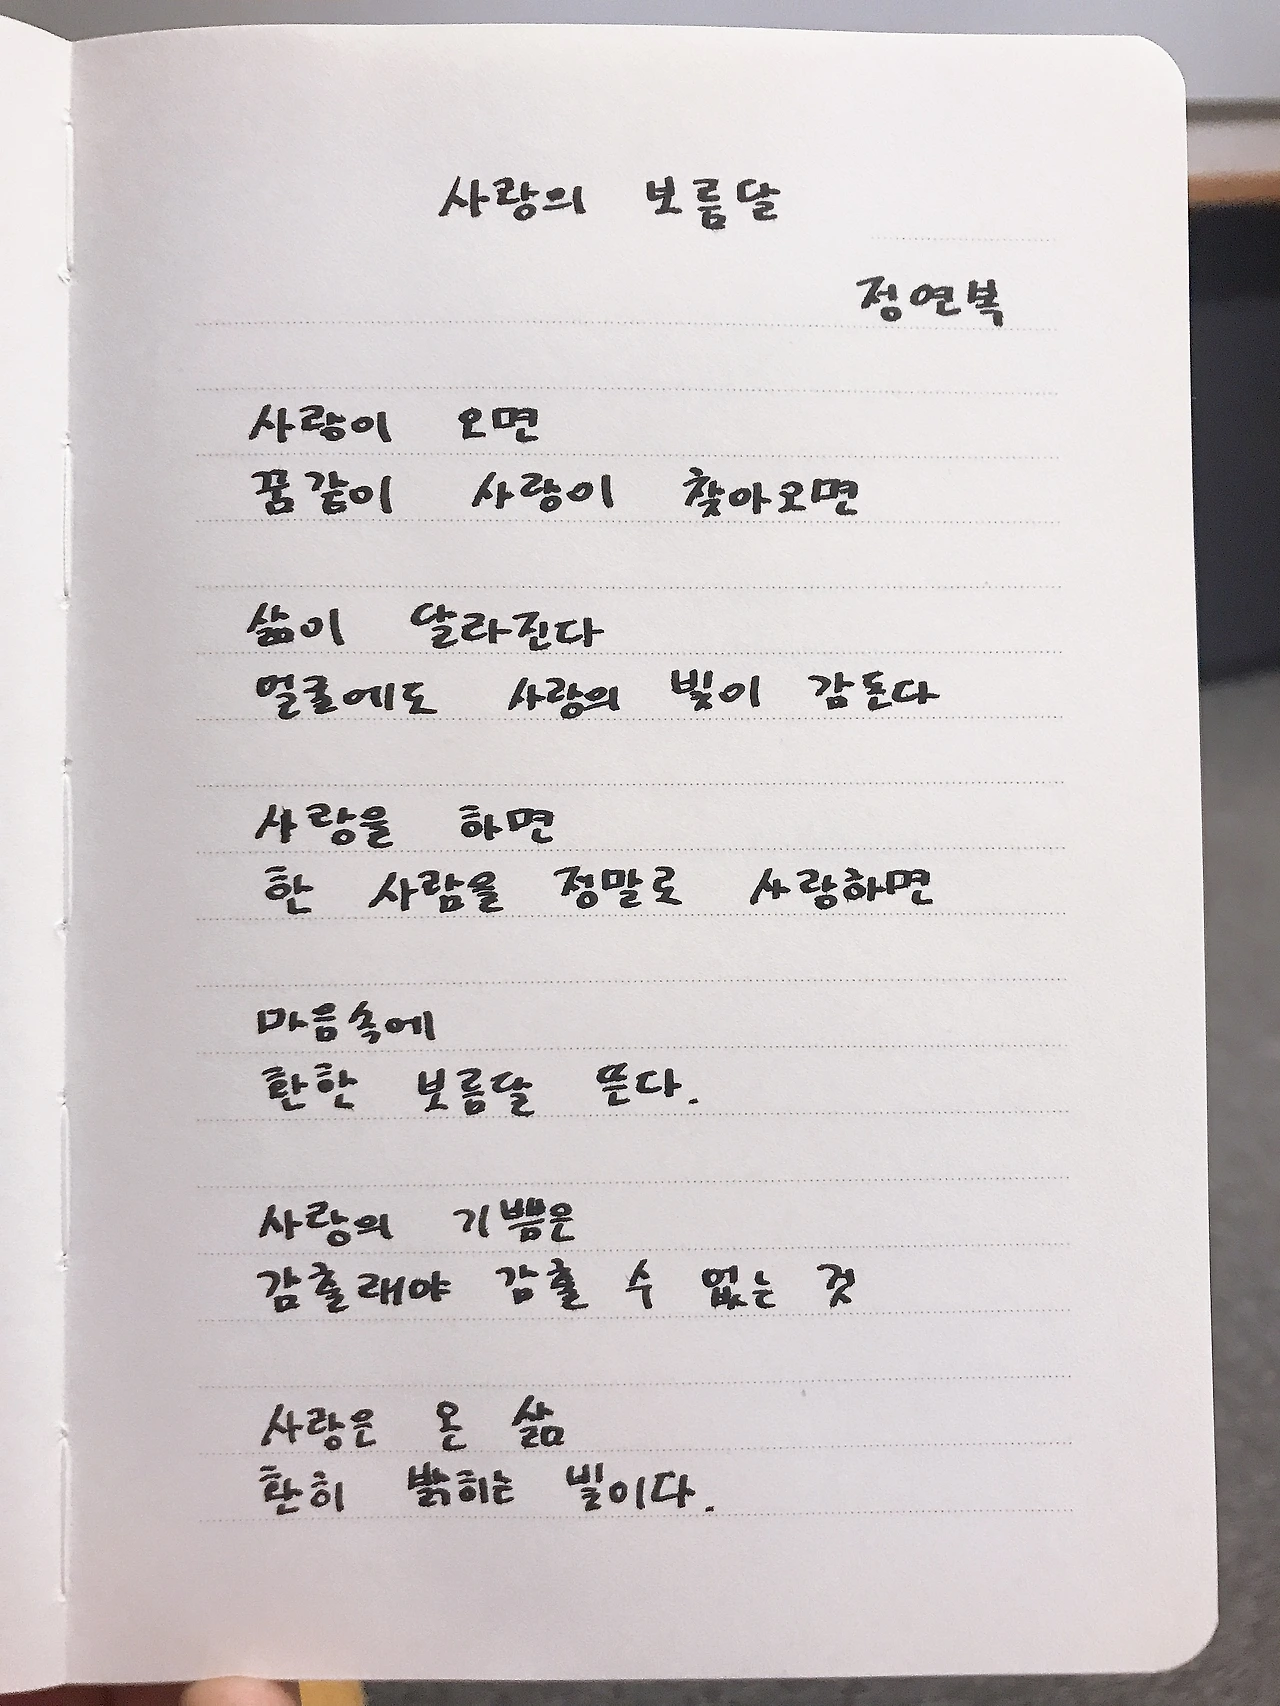 사랑의 보름달
정연복
사랑이 오면
꿈같이 사랑이 찾아오면
삶이 달라진다
얼굴에도 사랑의 빛이 감돈다
사랑을 하면
한 사람을 정말로 사랑하면
마음속에
환한 보름달 뜬다.
사랑의 기쁨은
감출래야 감출 수 없는 것
사랑은 온 삶
환히 밝히는 빛이다.